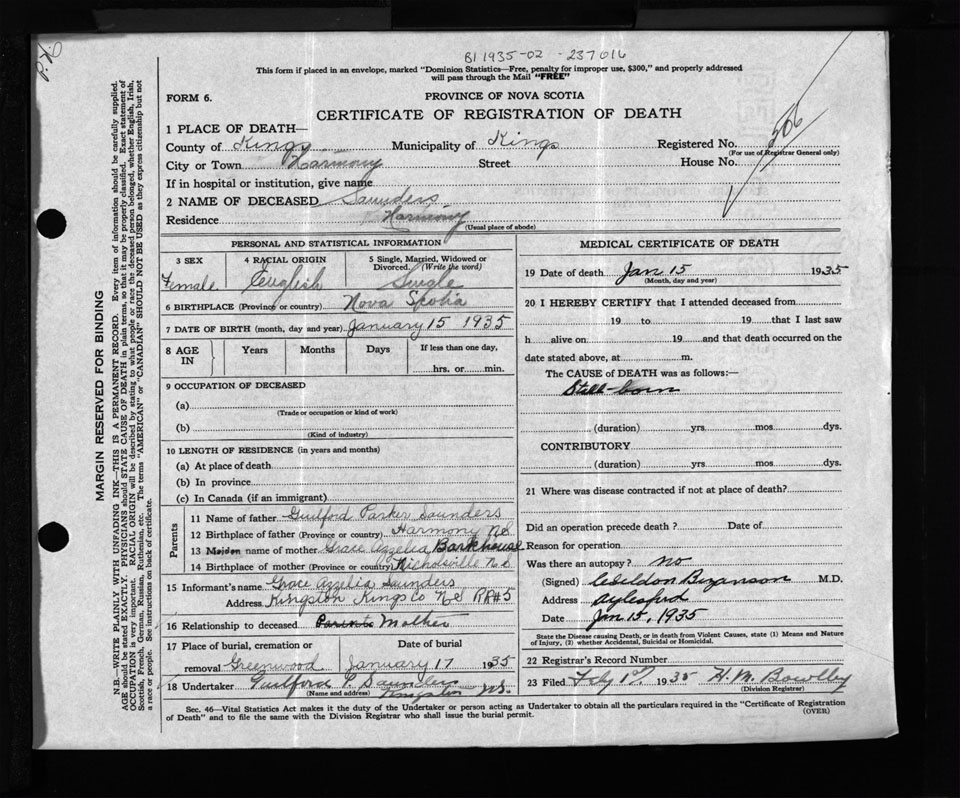 B1 1935-02 237016
This form if placed in an envelope, marked "Dominion Statistics—Free, penalty for improper use, $300," and properly addressed
will pass through the Mail "FREE"
FORM 6.
PROVINCE OF NOVA SCOTIA
CERTIFICATE OF REGISTRATION OF DEATH
506
1 PLACE OF DEATH—
County of Kings Municipality of Kings Registered No.
(For use of Registrar General only)
City or Town Harmony Street House No.
If in hospital or institution, give name
2 NAME OF DECEASED Saunders
Residence Harmony
(Usual place of abode)
PERSONAL AND STATISTICAL INFORMATION
3 SEX 4 RACIAL ORIGIN 5 Single, Married, Widowed or
Divorced. (Write the word)
Female English Single
6 BIRTHPLACE (Province or country) Nova Scotia
7 DATE OF BIRTH (month, day and year) January 15 1935
8 AGE IN Years Months Days If less than one day,
hrs. or min.
9 OCCUPATION OF DECEASED
(a)
(Trade or occupation or kind of work)
(b)
(Kind of industry)
10 LENGTH OF RESIDENCE (in years and months)
(a) At place of death
(b) In province
(c) In Canada (if an immigrant)
Parents
11 Name of father Guilford Parker Saunders
12 Birthplace of father (Province or country) Harmony N.S
13 Maiden name of mother Grace Azzelia Barkhouse
14 Birthplace of mother (Province or country) Nicholsville N.S
15 Informant's name Grace Azzelia Saunders
Address Kingston Kings Co N S RR#5
16 Relationship to deceased Parents Mother
17 Place of burial, cremation or Date of burial
removal Greenwood January 17 1935
18 Undertaker Guilford P. Saunders
(Name and address) Kingston N.S.
MEDICAL CERTIFICATE OF DEATH
19 Date of death Jan 15 1935
(Month, day and year)
20 I HEREBY CERTIFY that I attended deceased from
19 to 19 that I last saw
h alive on 19 and that death occurred on the
date stated above, at m.
The CAUSE of DEATH was as follows:—
Still-born
(duration) yrs mos dys.
CONTRIBUTORY
(duration) yrs mos dys.
21 Where was disease contracted if not at place of death?
Did an operation precede death? Date of
Reason for operation
Was there an autopsy? no
(Signed) Weldon Bezanson M.D.
Address Aylesford
Date Jan 15, 1935
State the Disease causing Death, or in death from Violent Causes, state (1) Means and Nature
of Injury, (2) whether Accidental, Suicidal or Homicidal.
22 Registrar's Record Number
23 Filed Feby 1st 1935 H. M. Bowlby
(Division Registrar)
Sec. 46—Vital Statistics Act makes it the duty of the Undertaker or person acting as Undertaker to obtain all the particulars required in the "Certificate of Registration
of Death" and to file the same with the Division Registrar who shall issue the burial permit. (OVER)
MARGIN RESERVED FOR BINDING
N.B.—WRITE PLAINLY WITH UNFADING INK—THIS IS A PERMANENT RECORD. Every item of information should be carefully supplied.
AGE should be stated EXACTLY. PHYSICIANS should STATE CAUSE OF DEATH in plain terms, so that it may be properly classified. Exact statement of
OCCUPATION is very important. RACIAL ORIGIN will be described by stating to what people or race the deceased person belonged, whether English, Irish,
Scottish, French, German, Russian, Ruthenian, etc. The terms "AMERICAN" or "CANADIAN" SHOULD NOT BE USED as they express citizenship but not
a race or people. See instructions on back of certificate.